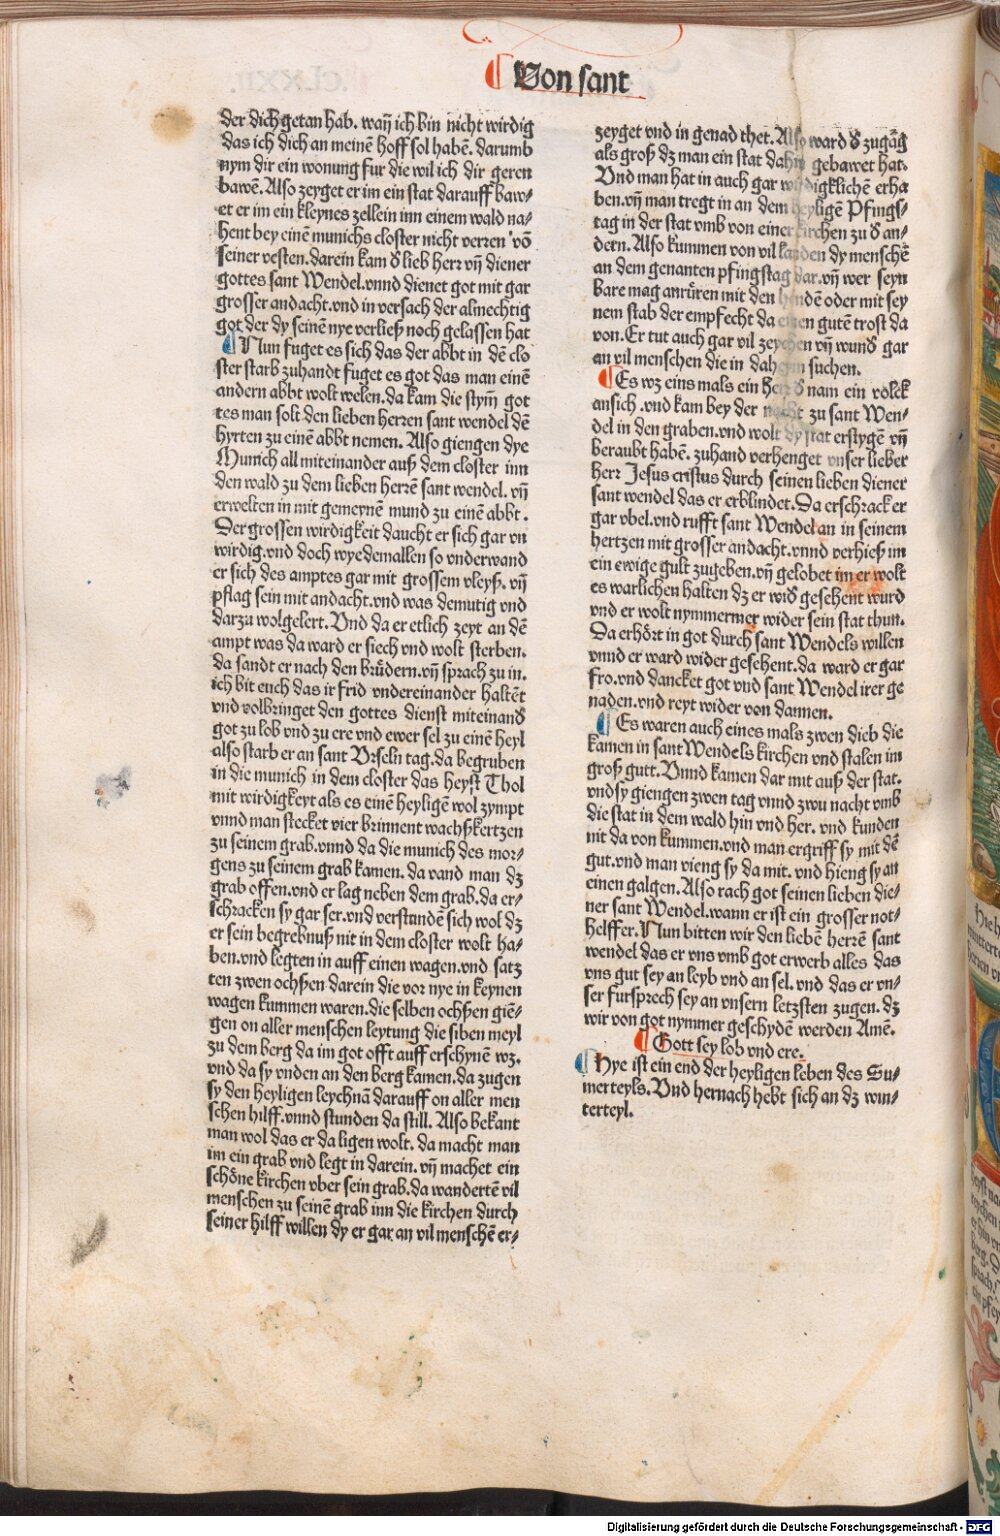 ¶ Von sant
der dich getan hab. wañ ich bin nicht wirdig
das ich dich an meinē hoff sol habē. darumb
nym dir ein wonung fur die wil ich dir geren
bawē. Also zeyget er im ein stat darauff baw⸗
et er im ein kleynes zellein inn einem wald na⸗
hent bey einē munichs closter nicht verren vō
seiner vesten. darein kam d̕ lieb herr vñ diener
gottes sant Wendel. vnnd dienet got mit gar
grosser andacht. vnd in versach der almechtig
got der dy seinē nye verließ noch gelassen hat
¶ Nun fuget es sich das der abbt in dē clo
ster starb zuhandt fuget es got das man einē
andern abbt wolt welen. da kam die stym̄ got
tes man solt den lieben herren sant wendel dē
hyrten zu einē abbt nemen. Also giengen dye
Munich all miteinander auß dem closter inn
den wald zu dem lieben herrē sant wendel. vñ
erwelten in mit gemeynē mund zu einē abbt.
Der grossen wirdigkeit daucht er sich gar vn
wirdig. vnd doch wyedemallen so vnderwand
er sich des amptes gar mit grossem vleyß. vñ
pflag sein mit andacht. vnd was demutig vnd
darzu wolgelert. Vnd da er etlich zeyt an dē
ampt was da ward er siech vnd wolt sterben.
da sandt er nach den brůdern. vñ sprach zu in.
ich bit euch das ir frid vndereinander haltēt
vnd volbringet den gottes dienst miteinand̕
got zu lob vnd zu ere vnd ewer sel zu einē heyl
also starb er an sant Vrseln tag. da begruben
in die munich in dem closter das heyst Thol
mit wirdigkeyt als es einē heyligē wol zympt
vnnd man stecket vier brinnent wachßkertzen
zu seinem grab. vnnd da die munich des mor⸗
gens zu seinem grab kamen. da vand man dz
grab offen. vnd er lag neben dem grab. da er⸗
schracken sy gar ser. vnd verstundē sich wol dz
er sein begrebnuß nit in dem closter wolt ha⸗
ben. vnd legten in auff einen wagen. vnd satz
ten zwen ochßen darein die vor nye in keynen
wagen kummen waren. die selben ochßen giē⸗
gen on aller menschen leytung die siben meyl
zu dem berg da im got offt auff erschynē wz.
vnd da sy vnden an den berg kamen. da zugen
sy den heyligen leychnā darauff on aller men
schen hilff. vnnd stunden da still. Also bekant
man wol das er da ligen wolt. da macht man
im ein grab vnd legt in darein. vñ machet ein
schöne kirchen vber sein grab. da wandertē vil
menschen zu seinē grab inn die kirchen durch
seiner hilff willen dy er gar an vil menschē er⸗
zeyget vnd in genad thet. Also ward d̕ zugāg
als groß dz man ein stat dahin gebawet hat.
Vnd man hat in auch gar wirdigklichē erha
ben. vñ man tregt in an dem heyligē Pfings⸗
tag in der stat vmb von einer kirchen zu d̕ an⸗
dern. Also kummen von vil landen dy menschē
an dem genanten pfingstag dar. vñ wer seyn
bare mag anrůren mit den hendē oder mit sey
nem stab der empfecht da einen gutē trost da
von. Er tut auch gar vil zeychen vñ wund̕ gar
an vil menschen die in daheym suchen.
¶ Es wz eins mals ein herr d̕ nam ein volck
an sich. vnd kam bey der nacht zu sant Wen⸗
del in den graben. vnd wolt dy stat erstygē vñ
beraubt habē. zuhand verhenget vnser lieber
herr Jesus cristus durch seinen lieben diener
sant wendel das er erblindet. Da erschrack er
gar vbel. vnd rufft sant Wendel an in seinem
hertzen mit grosser andacht. vnnd verhieß im
ein ewige gult zugeben. vñ gelobet im er wolt
es warlichen halten dz er wid̕ gesehent wurd
vnd er wolt nymmermer wider sein stat thun.
Da erhört in got durch sant Wendels willen
vnnd er ward wider gesehent. da ward er gar
fro. vnd dancket got vnd sant Wendel irer ge
naden. vnd reyt wider von dannen.
¶ Es waren auch eines mals zwen dieb die
kamen in sant Wendels kirchen vnd stalen im
groß gutt. Vnnd kamen dar mit auß der stat.
vnd sy giengen zwen tag vnnd zwu nacht vmb
die stat in dem wald hin vnd her. vnd kunden
nit da von kummen. vnd man ergriff sy mit dē
gut. vnd man vieng sy da mit. vnd hieng sy an
einen galgen. Also rach got seinen lieben die⸗
ner sant Wendel. wann er ist ein grosser not⸗
helffer. Nun bitten wir den liebē herrē sant
wendel das er vns vmb got erwerb alles das
vns gut sey an leyb vnd an sel. vnd das er vn⸗
ser fursprech sey an vnsern letzsten zugen. dz
wir von got nymmer geschydē werden Amē.
¶ Gott sey lob vnd ere.
¶ Hye ist ein end der heyligen leben des Su⸗
merteyls. Vnd hernach hebt sich an dz win⸗
terteyl.
Digitalisierung gefördert durch die Deutsche Forschungsgemeinschaft - DFG